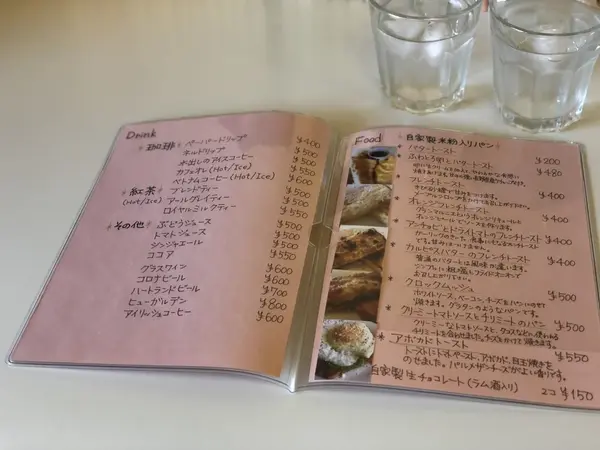 Drink
*珈琲* ペーパードリップ ¥400
ネルドリップ ¥500
水出しのアイスコーヒー ¥500
カフェオレ(Hot/Ice) ¥550
ベトナムコーヒー(Hot/Ice) ¥500
*紅茶* ブレンドティー ¥400
(Hot/Ice) アールグレイティー ¥500
ロイヤルミルクティー ¥550
*その他* ぶどうジュース ¥500
トマトジュース ¥500
ジンジャエール ¥500
ココア ¥550
グラスワイン ¥600
コロナビール ¥600
ハートランドビール ¥700
ヒューガルデン ¥800
アイリッシュコーヒー ¥600
Food *自家製米粉入りパン*
* バタートースト ¥200
* ふわとろ卵とバタートースト ¥480
* フレンチトースト ¥400
* オレンジフレンチトースト ¥400
* アンチョビとドライトマトのフレンチトースト ¥400
* カルピスバターのフレンチトースト ¥400
普通のバターとは風味が違います。
* クロックムッシュ ¥500
ホワイトソース、ベーコン、チーズをパンにのせて
焼きます。グラタンのようなパンです。
* クリーミートマトソースとチリミートのパン ¥500
クリーミーなトマトソースと、タコスなどに使われる
チリミートを合わせました。チーズをかけて焼きます。
* アボカドトースト ¥550
トーストにトマト、アボカド、目玉焼きを
のせました。パルメザンチーズがよい香りです。
自家製生チョコレート(ラム酒入り) 2コ ¥150